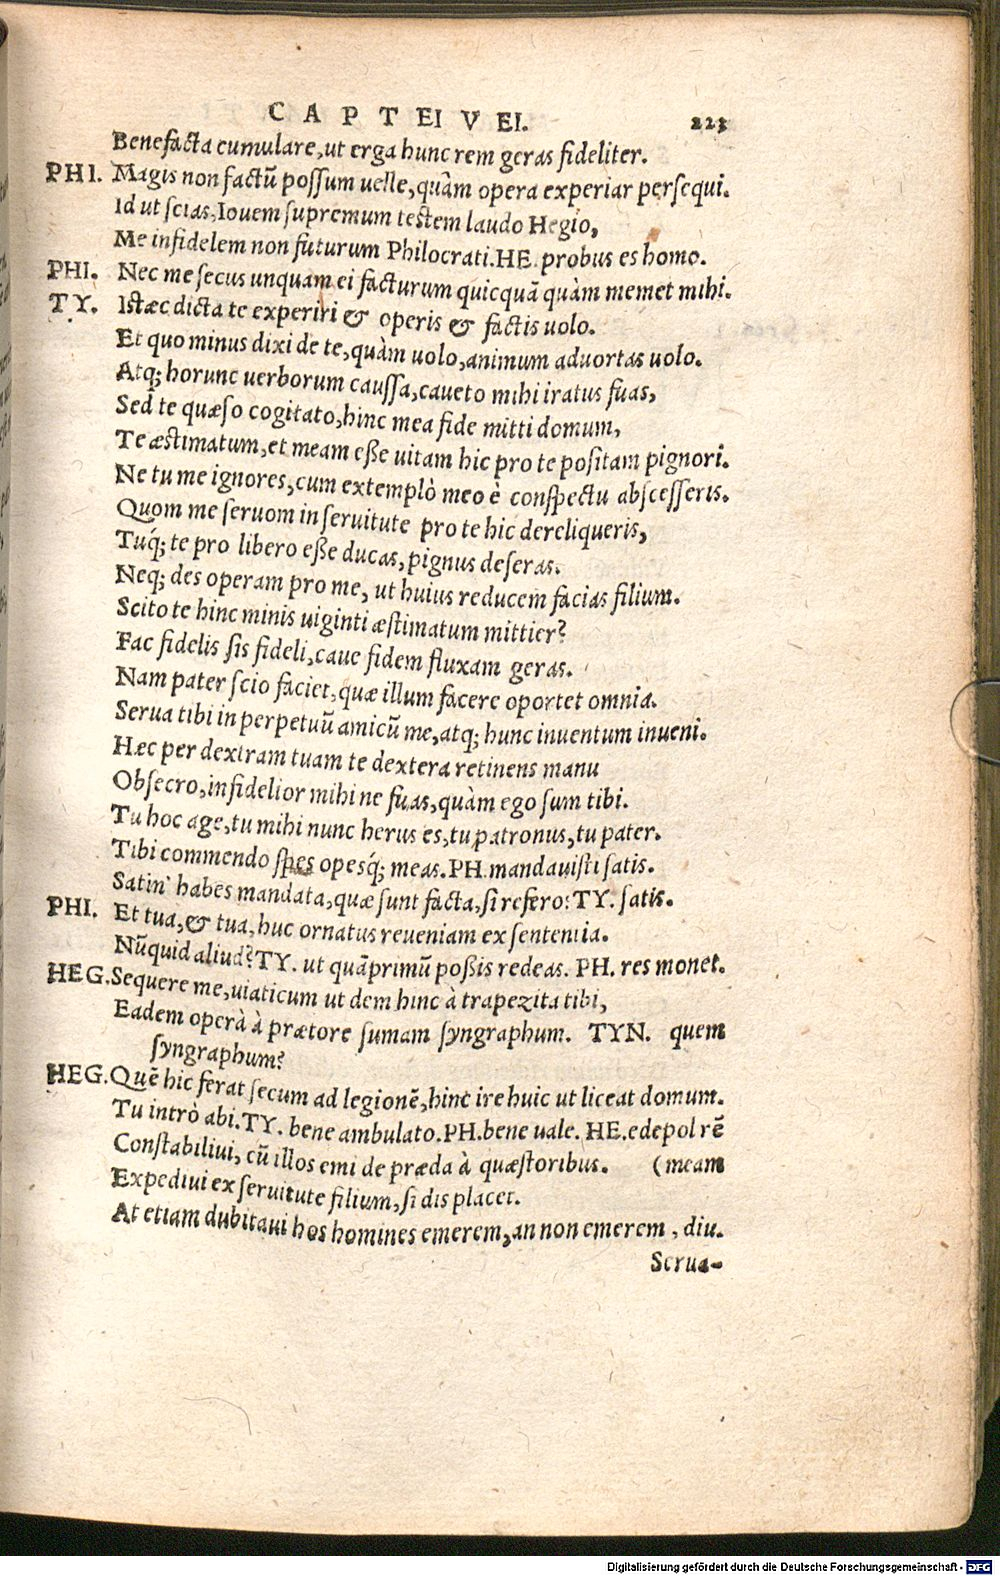 CAPTEI VEI. 223
Benefacta cumulare, ut erga hunc rem geras fideliter.
PHI. Magis non factũ possum uelle, quàm opera experiar persequi.
Id ut scias, Iouem supremum testem laudo Hegio,
Me infidelem non futurum Philocrati. HE. probus es homo.
PHI. Nec me secus unquam ei facturum quicquã quàm memet mihi.
TY. Istæc dicta te experiri & operis & factis uolo.
Et quo minus dixi de te, quàm uolo, animum aduortas uolo.
Atq; horunc uerborum caussa, caueto mihi iratus fuas,
Sed te quæso cogitato, hinc mea fide mitti domum,
Te æstimatum, et meam esse uitam hic pro te positam pignori.
Ne tu me ignores, cum extemplò meo è conspectu abscesseris.
Quom me seruom in seruitute pro te hic dereliqueris,
Tuq́; te pro libero esse ducas, pignus deseras.
Neq; des operam pro me, ut huius reducem facias filium.
Scito te hinc minis uiginti æstimatum mittier?
Fac fidelis sis fideli, caue fidem fluxam geras.
Nam pater scio faciet, quæ illum facere oportet omnia.
Serua tibi in perpetuũ amicũ me, atq; hunc inuentum inueni.
Hæc per dextram tuam te dextera retinens manu
Obsecro, infidelior mihi ne fuas, quàm ego sum tibi.
Tu hoc age, tu mihi nunc herus es, tu patronus, tu pater.
Tibi commendo spes opesq́; meas. PH. mandauisti satis.
Satin' habes mandata, quæ sunt facta, si refero: TY. satis.
PHI. Et tua, & tua, huc ornatus reueniam ex sententia.
Nũquid aliud? TY. ut quãprimũ possis redeas. PH. res monet.
HEG. Sequere me, uiaticum ut dem hinc à trapezita tibi,
Eadem operà à prætore sumam syngraphum. TYN. quem
syngraphum?
HEG. Quẽ hic ferat secum ad legionẽ, hinc ire huic ut liceat domum.
Tu intrò abi. TY. bene ambulato. PH. bene uale. HE. edepol rẽ
Constabiliui, cũ illos emi de præda à quæstoribus. (meam
Expediui ex seruitute filium, si dis placet.
At etiam dubitaui hos homines emerem, an non emerem, diu.
Serua-
Digitalisierung gefördert durch die Deutsche Forschungsgemeinschaft - DFG